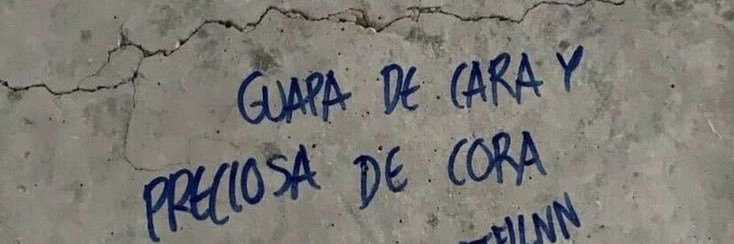 GUAPA DE CARA Y
PRECIOSA DE CORA